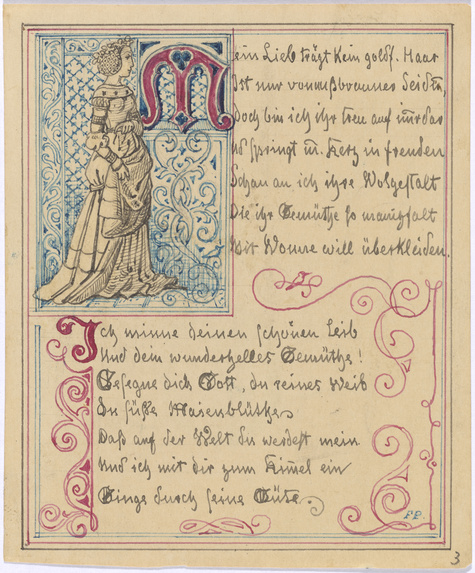 Mein Lieb trägt kein golds. Haar
Ist nur von nußbrauner Seiden,
Doch bin ich ihr treu auf im̄rdar
Es springt m. Herz in freuden
Schau an ich ihre Wolgestalt
Die ihr Gemüthe so manigfalt
Mit Wonne will überkleiden.
Ich minne deinen schönen Leib
Und dein wunderhelles Gemüthe!
Gesegne dich Gott, du reines Weib
Du süße Maienblüthe
Daß auf der Welt du werdest mein
Und ich mit dir zum Himel ein
Ginge durch seine Güte.
FP.
3